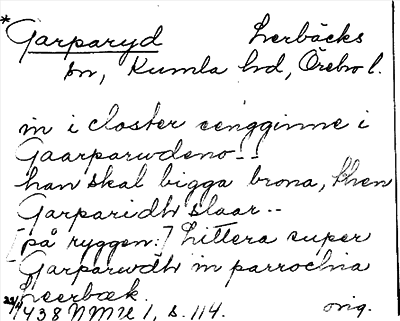 * Garparyd Lerbäcks
sn, Kumla hd, Örebro l.
in i closter engginne i
Gaarparudeno--
han skal bigga brona, then
Garparidh slaar--
[på ryggen:] Littera super
Garparudh in parrochia
Leerbæk.
1438 NMU 1, s. 114. orig.